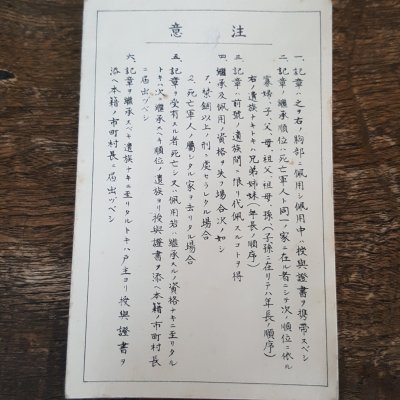 注意
一、記章ハ之ヲ右ノ胸部ニ佩用シ佩用中ハ授與證書ヲ携帶スベシ
二、記章ノ繼承順位ハ死亡軍人ト同一ノ家ニ在ル者ニシテ次ノ順位ニ依ル
寡婦、子、父、母、祖父、祖母、孫(子孫ニ在リテハ年長ノ順序)
右ノ遺族ナキトキハ兄弟姉妹(年長ノ順序)
三、記章ハ前號ノ遺族間ニ限リ代佩スルコトヲ得
四、繼承及佩用ノ資格ヲ失フ場合次ノ如シ
1、禁錮以上ノ刑ニ處セラレタル場合
2、死亡軍人ノ屬シタル家ヲ去リタル場合
五、記章ヲ受有スル者死亡シ又ハ佩用若ハ繼承スルノ資格ナキニ至リタル
トキハ次ニ繼承スベキ順位ノ遺族ヨリ授與證書ヲ添ヘ本籍ノ市町村長
ニ屆出ヅベシ
六、記章ヲ繼承スベキ遺族ナキニ至リタルトキハ戸主ヨリ授與證書ヲ
添ヘ本籍ノ市町村長ニ屆出ヅベシ